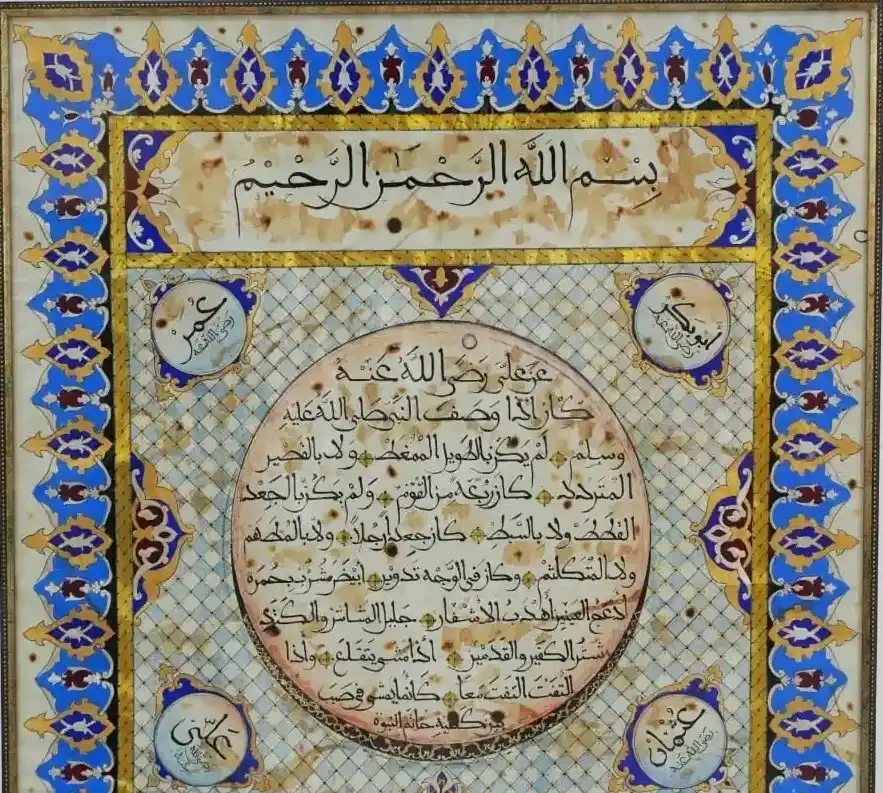 بِسْمِ اللَّهِ الرَّحْمَنِ الرَّحِيْمِ
أبو بكر رضي الله عنه
عُمَرْ رضي الله عنه
عن علي رَضَيَ اللهُ عَنْهُ
كان اذا وصف النبي صلى الله عليه
وسلم لَمْ يكن بالطويل الممغط ولا بالقصير
المتردد كان ربعة من القوم وَلَمْ يكن بالجعد
القطط ولا بالسَّبط كان جعداً رجلاً ولا بالمطهم
ولا المتكلثم وكان في الوجه تدوير ابيض مشرب بحمرة
أدعج العينين أهدب الاشفار جليل المشاش والكتد
شثن الكفين والقدمين اذا مشى يتقلع واذا
التفت التفت معا كانما يمشي في صبب
بين كتفيه خاتم النبوة
عثمان رضي الله عنه
علي رضي الله عنه